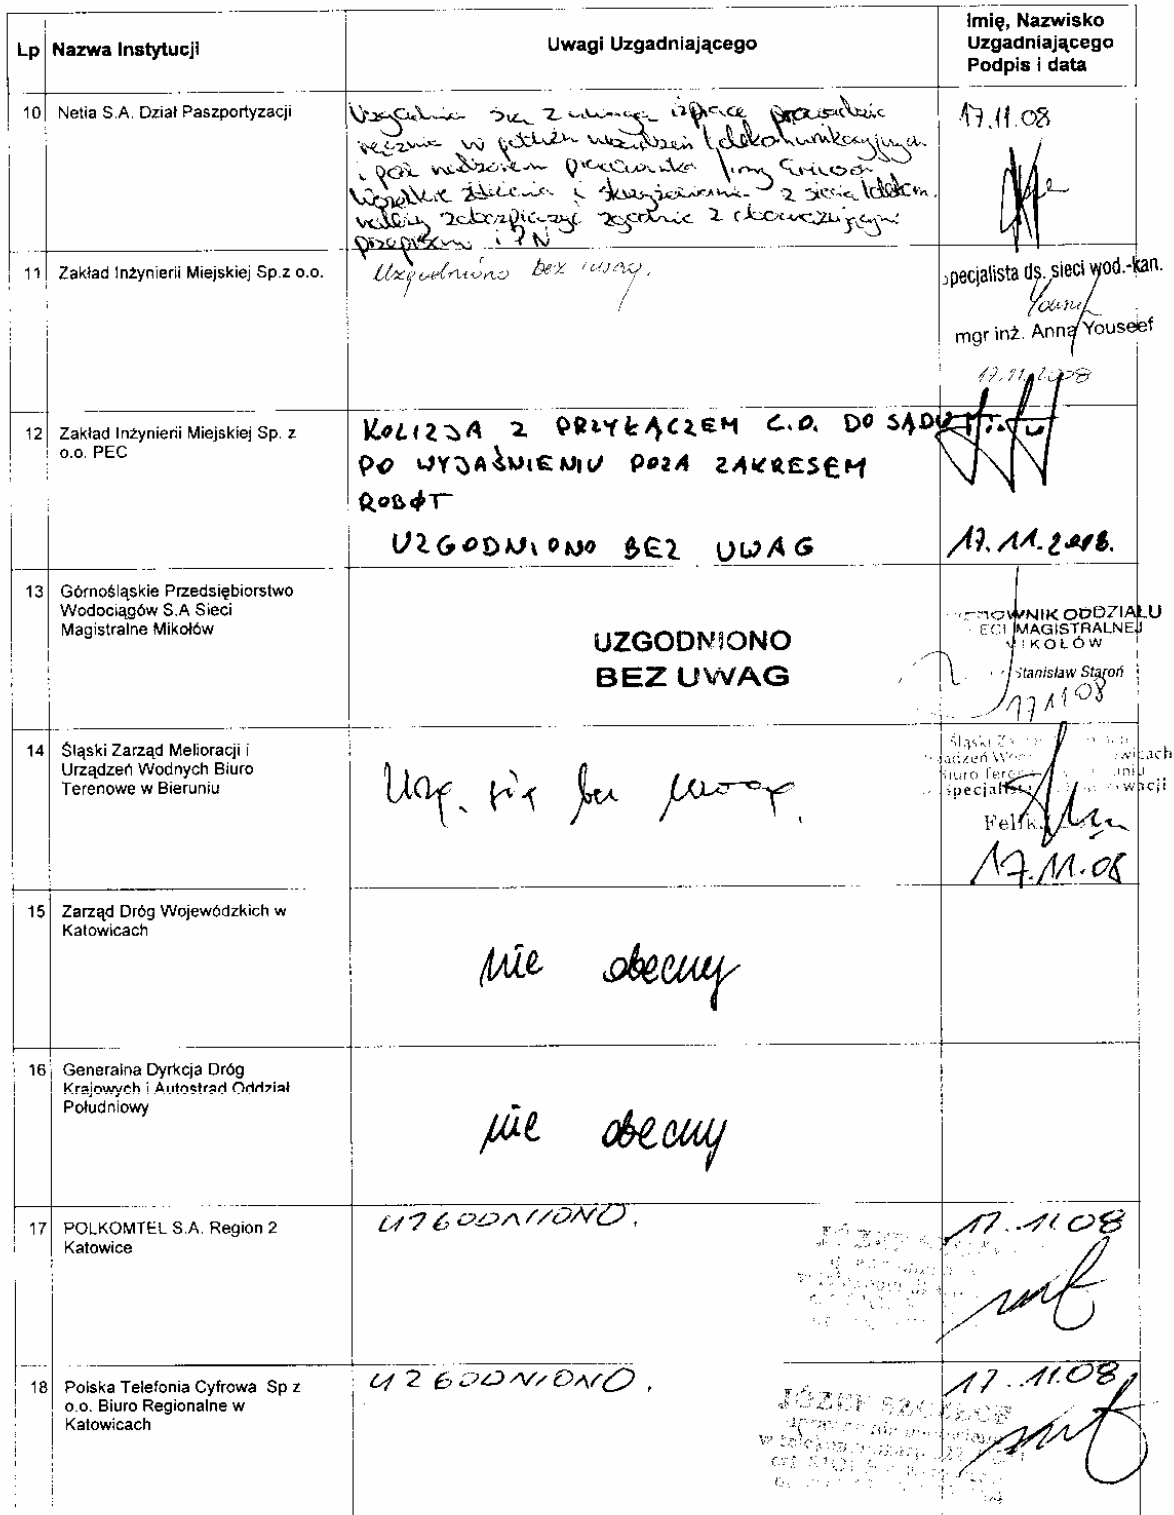 Lp Nazwa Instytucji Uwagi Uzgadniającego Imię, Nazwisko
Uzgadniającego
Podpis i data
10 Netia S.A. Dział Paszportyzacji
Uzgadnia się z uwagą iż prace prowadzić
ręcznie w pobliżu urządzeń telekomunikacyjnych
i pod nadzorem pracownika firmy
Wszelkie zbliżenia i skrzyżowania z siecią telekom.
należy zabezpieczyć zgodnie z obowiązującymi
przepisami i PN
17.11.08
11 Zakład Inżynierii Miejskiej Sp.z o.o.
Uzgodniono bez uwag.
specjalista ds. sieci wod.-kan.
mgr inż. Anna Youseef
17.11.2008
12 Zakład Inżynierii Miejskiej Sp. z
o.o. PEC
KOLIZJA Z PRZYŁĄCZEM C.O. DO SĄDU
PO WYJAŚNIENIU POZA ZAKRESEM
ROBÓT
UZGODNIONO BEZ UWAG
17.11.2008.
13 Górnośląskie Przedsiębiorstwo
Wodociągów S.A Sieci
Magistralne Mikołów
UZGODNIONO
BEZ UWAG
KIEROWNIK ODDZIAŁU
SIECI MAGISTRALNEJ
MIKOŁÓW
Stanisław Staroń
17 11 08
14 Śląski Zarząd Melioracji i
Urządzeń Wodnych Biuro
Terenowe w Bieruniu
Uzg. się bez uwag.
Śląski
Biuro
specjalista
17.11.08
15 Zarząd Dróg Wojewódzkich w
Katowicach
nie obecny
16 Generalna Dyrkcja Dróg
Krajowych i Autostrad Oddział
Południowy
nie obecny
17 POLKOMTEL S.A. Region 2
Katowice
UZGODNIONO.
17.11.08
JÓZEF
18 Polska Telefonia Cyfrowa Sp z
o.o. Biuro Regionalne w
Katowicach
UZGODNIONO.
17.11.08
JÓZEF